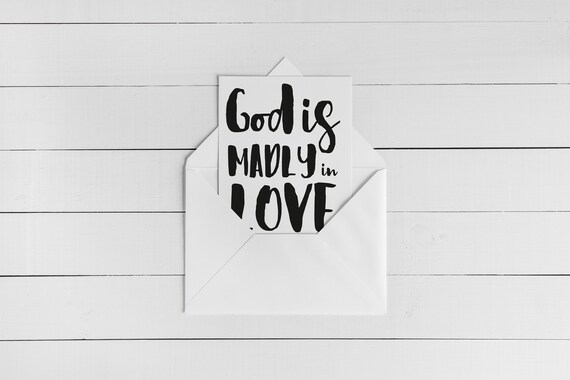 God is
MADLY in
LOVE